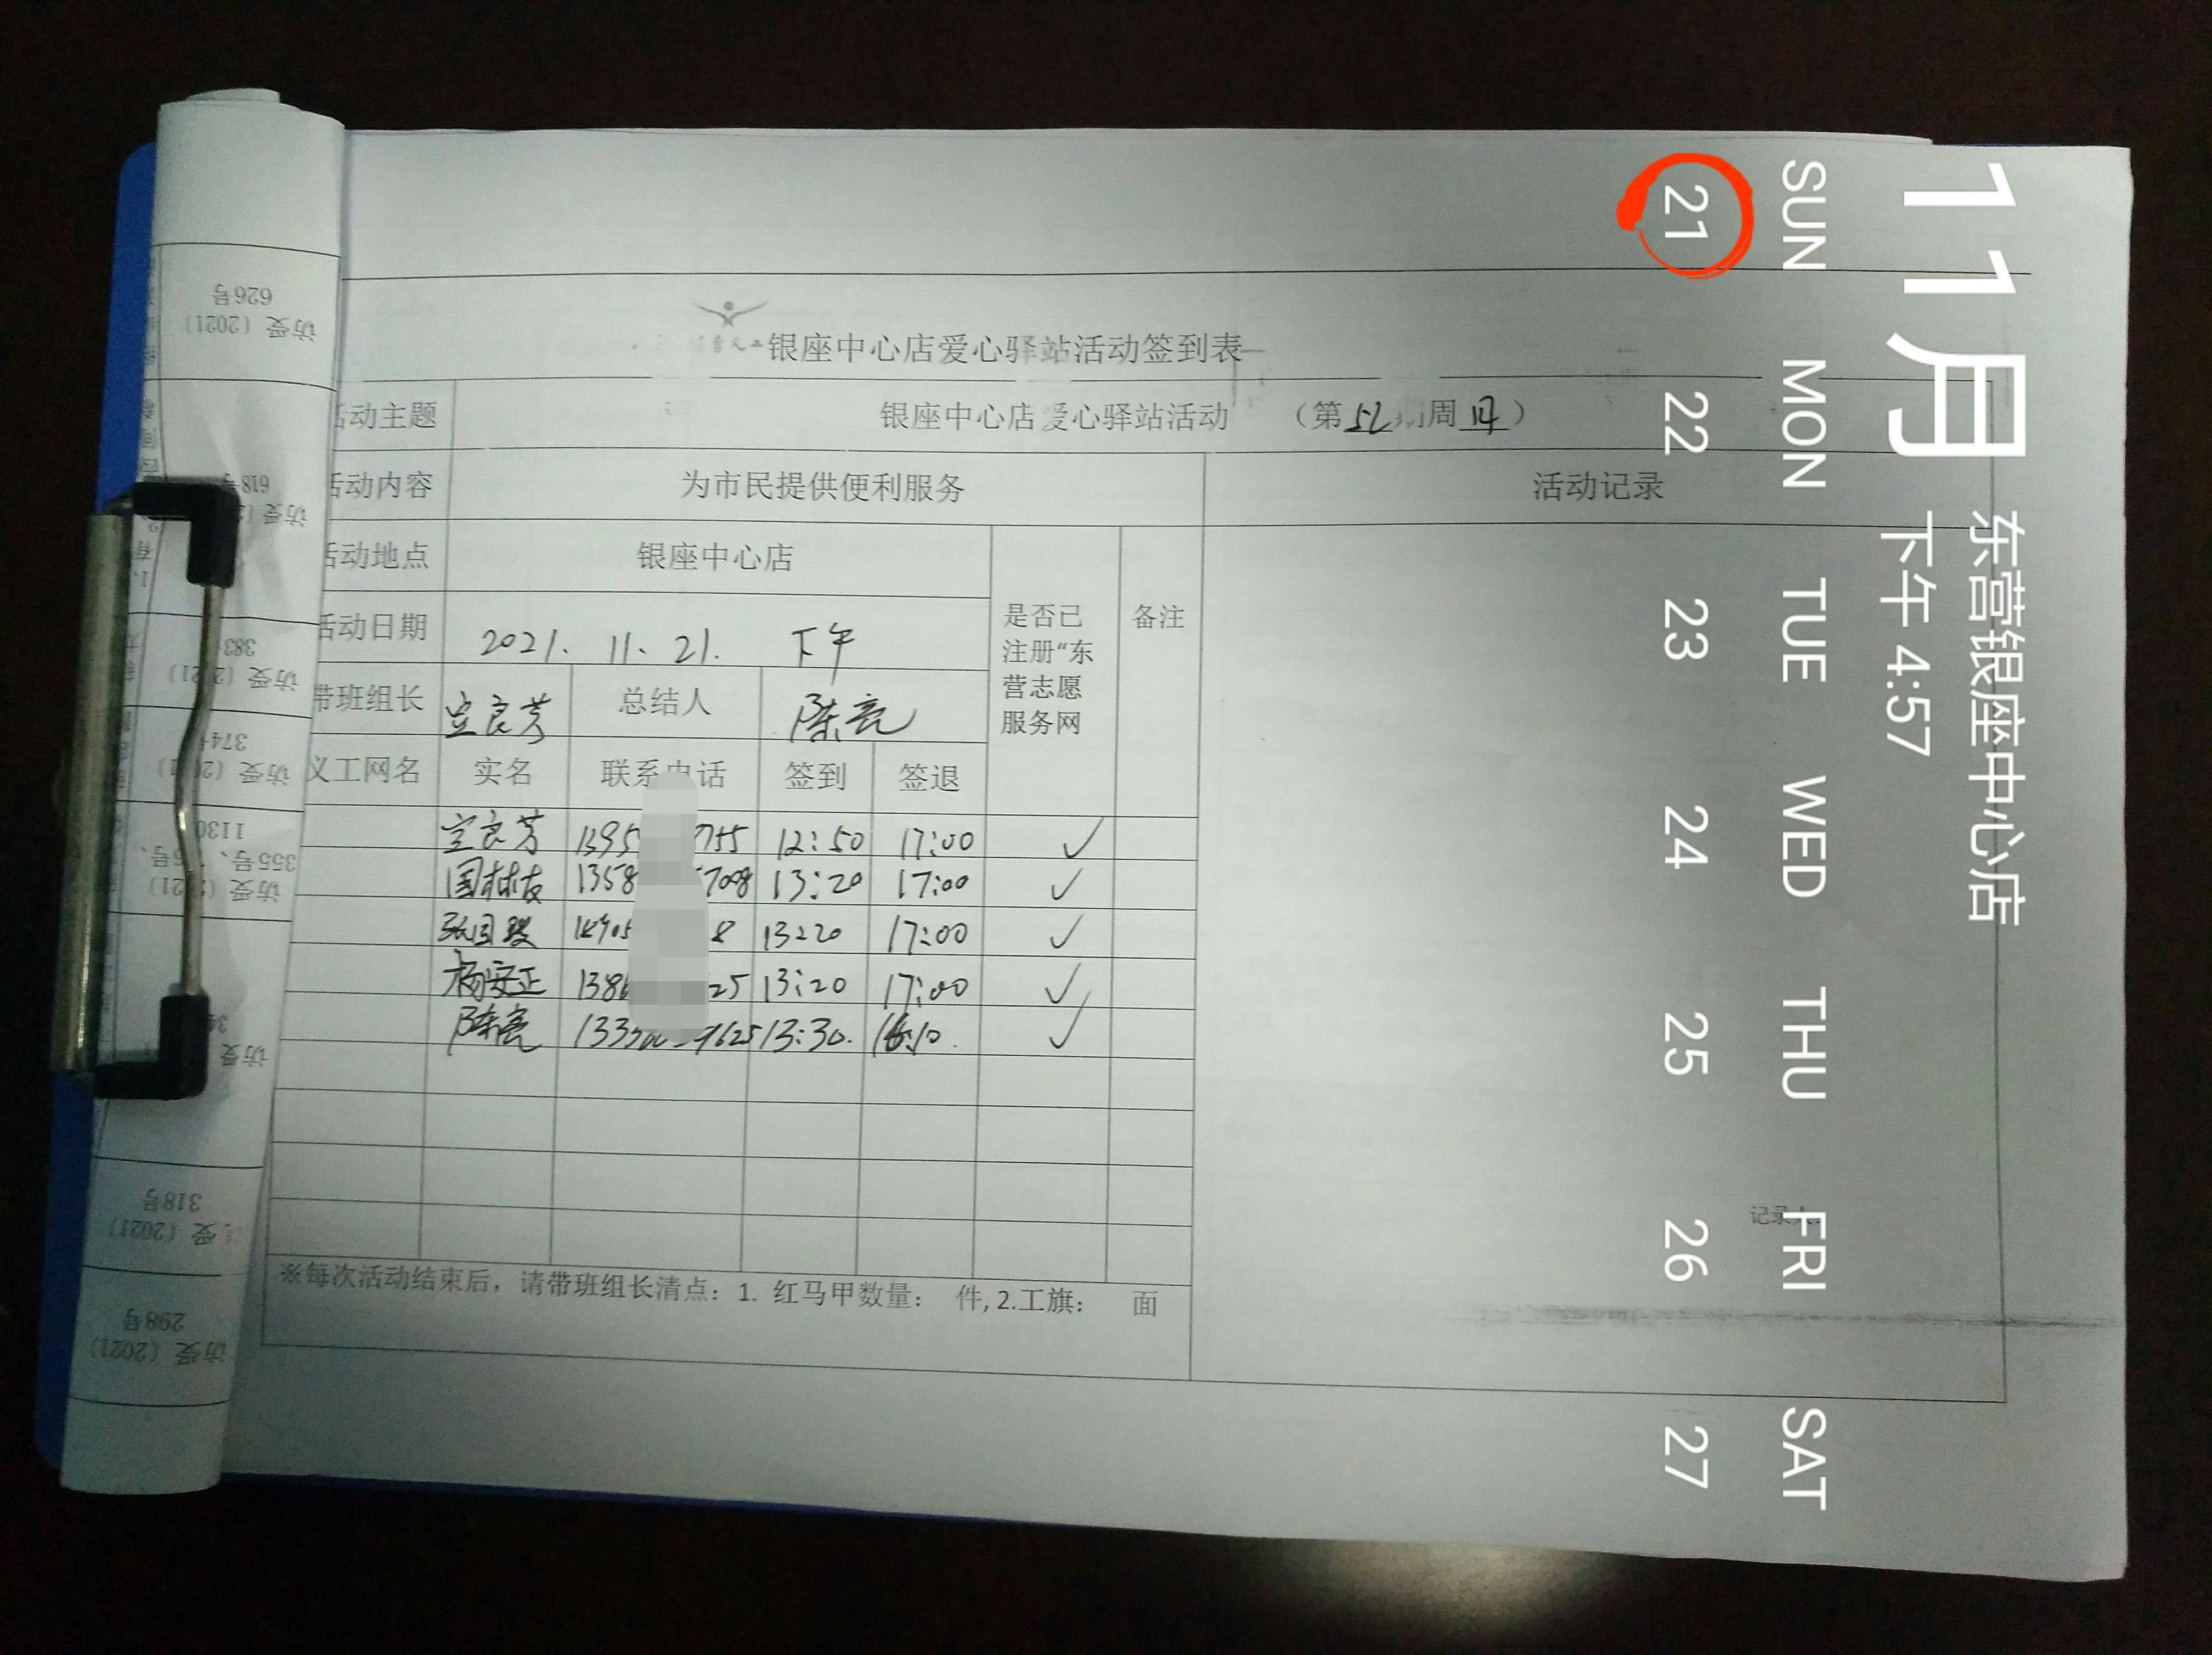 银座中心店爱心驿站活动签到表
活动主题 银座中心店爱心驿站活动 （第52期周日）
活动内容 为市民提供便利服务 活动记录
活动地点 银座中心店
是否已注册“东营志愿服务网 备注
活动日期 2021. 11. 21. 下午
带班组长 良芳 总结人 陈亮
义工网名 实名 联系电话 签到 签退
良芳 1395 755 12:50 17:00 ✓
国林友 1358 7008 13:20 17:00 ✓
张国 8 13:20 17:00 ✓
杨安正 138 25 13:20 17:00 ✓
陈亮 133 7625 13:30. 16:10. ✓
记录人:
※每次活动结束后，请带班组长清点：1. 红马甲数量： 件, 2.工旗： 面
11月
东营银座中心店
下午 4:57
SUN MON TUE WED THU FRI SAT
21 22 23 24 25 26 27
访受（2021）
626号
618号
访受
383
访受
374
访受
1130
355号、
访受
访受
访受（2021）
318号
访受（2021）
298号